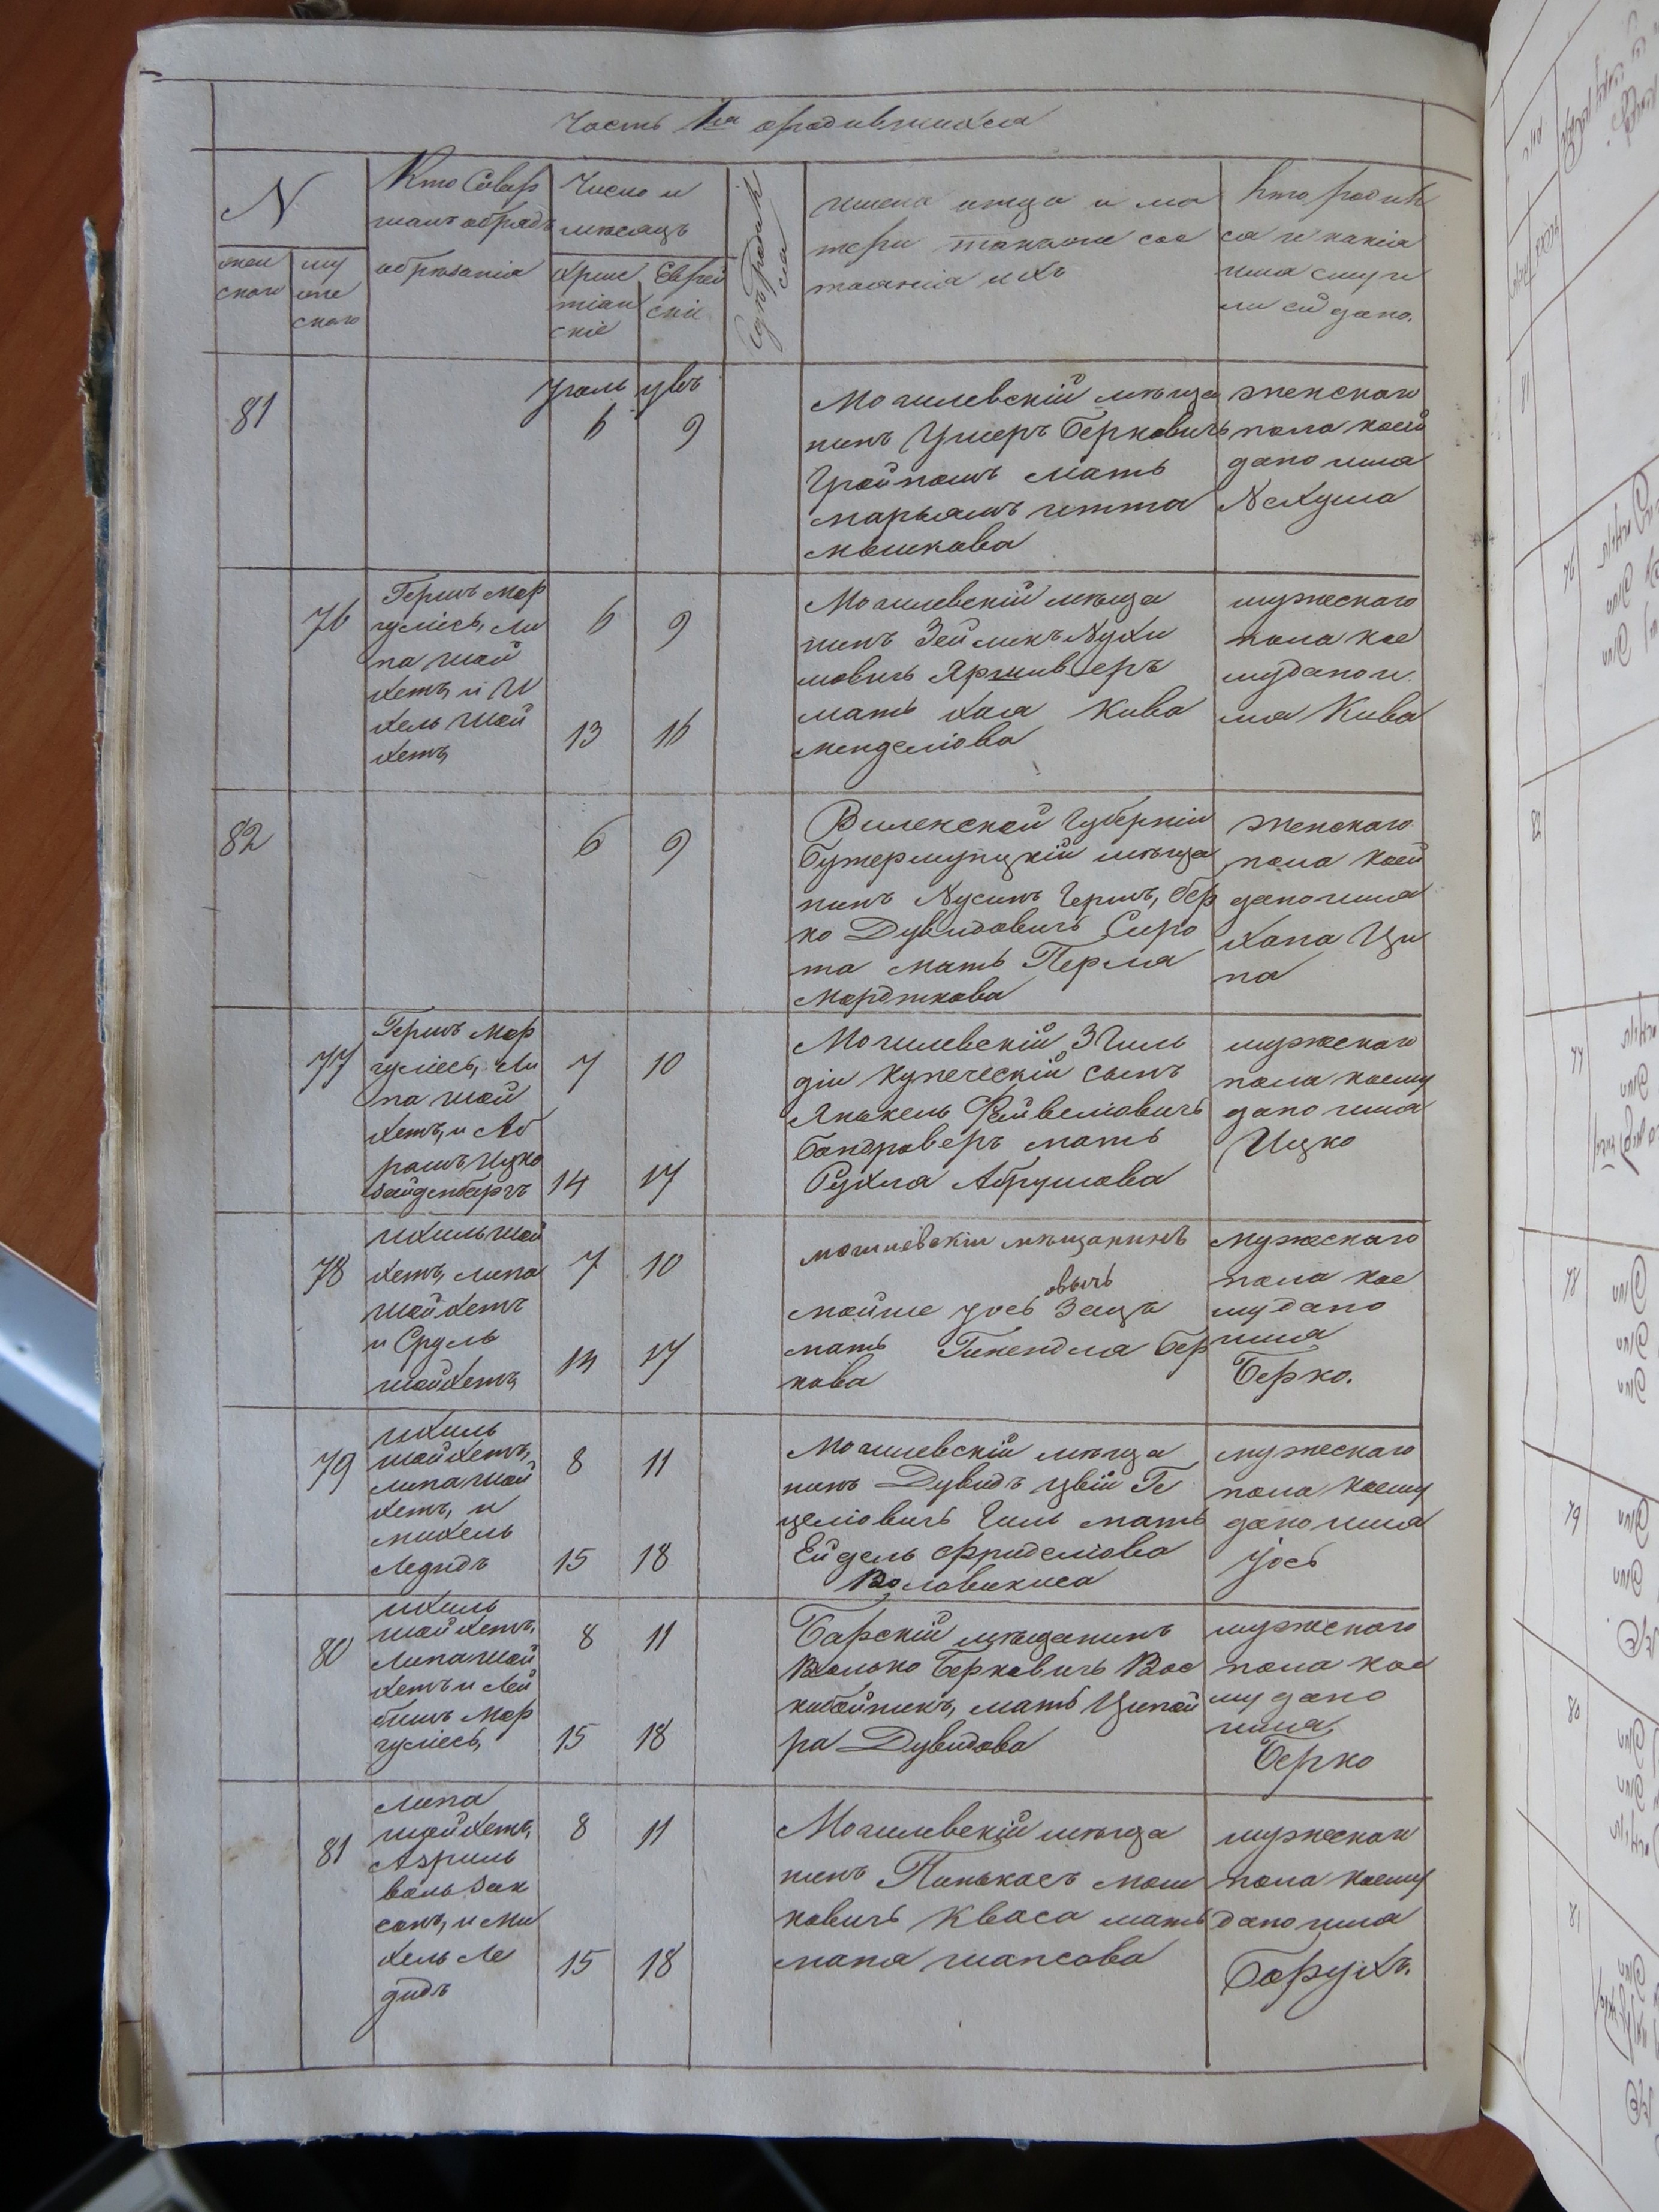 Часть 1ая о родившихся
N
жен
скаго
му
же
скаго
Кто совер
шалъ обрядъ
обрѣзанія
Число и
мѣсяцъ
Христ
тіан
скіе
Еврей
скіе
Гдѣ родил
ся
имена отца и ма
тери также сос
тоянія ихъ
Кто родил
ся и какія
имя ему и
ли ей дано.
81
Іюль
6
9
Могилевскій мѣща
нинъ Умеръ Берковичъ
Гройпанъ мать
Марьямъ Итта
Мошкова
женскаго
пола коей
дано имя
Нехума
76
Гершъ Мар
гуліесъ, Ли
па Шой
хетъ, и И
хель Шой
хетъ
6
9
13
16
Могилевскій мѣща
нинъ Зейликъ Нухи
мовичъ
мать Хая Кива
Менделіова
мужескаго
пола кое
му дано и
мя Кива
82
6
9
Виленской Губерніи
мѣща
нинъ Нусинъ Гершъ, Бер
ко Дувидовичъ Сиро
та мать Перля
Мордткова
женскаго
пола коей
дано имя
Хана Ци
па
77
Гершъ Мар
гуліесъ, Ли
па Шой
хетъ, и Аб
рамъ Ицко
Зайденбергъ
7
10
14
17
Могилевскій 3 Гиль
діи купеческій сынъ
Янькель Файвеліовичъ
Бандроверъ мать
Рухля Абрумова
мужескаго
пола коему
дано имя
Ицко
78
Ихиль Шой
хетъ, Липа
Шойхетъ
и Сруль
Шойхетъ
7
10
14
17
Могилевскій мѣщанинъ
овичъ
Мойше Іось Зацъ
мать Гинендля Бер
кова
мужескаго
пола кое
му дано
имя
Берко.
79
Ихиль
Шойхетъ,
Липа Шой
хетъ, и
Михель
Ледидъ
8
11
15
18
Могилевскій мѣща
нинъ Дувидъ Цвій Ге
целіовичъ Гиль мать
Ейдель Фриделіова
мужескаго
пола коему
дано имя
Іось
80
Ихиль
Шойхетъ,
Липа Шой
хетъ и Лей
бишъ Мар
гуліесъ,
8
11
15
18
Барскій мѣщанинъ
Волько Берковичъ Вос
кобойникъ, мать Ципой
ра Дувидова
мужескаго
пола кое
му дано
имя,
Берко
81
Липа
Шойхетъ,
Азриль
Вользак
сонъ, и Ми
хель Ле
дидъ
8
11
15
18
Могилевскій мѣща
нинъ Пинькасъ Мош
ковичъ Кваса мать
Маня Шапсова
мужескаго
пола коему
дано имя
Борухъ.